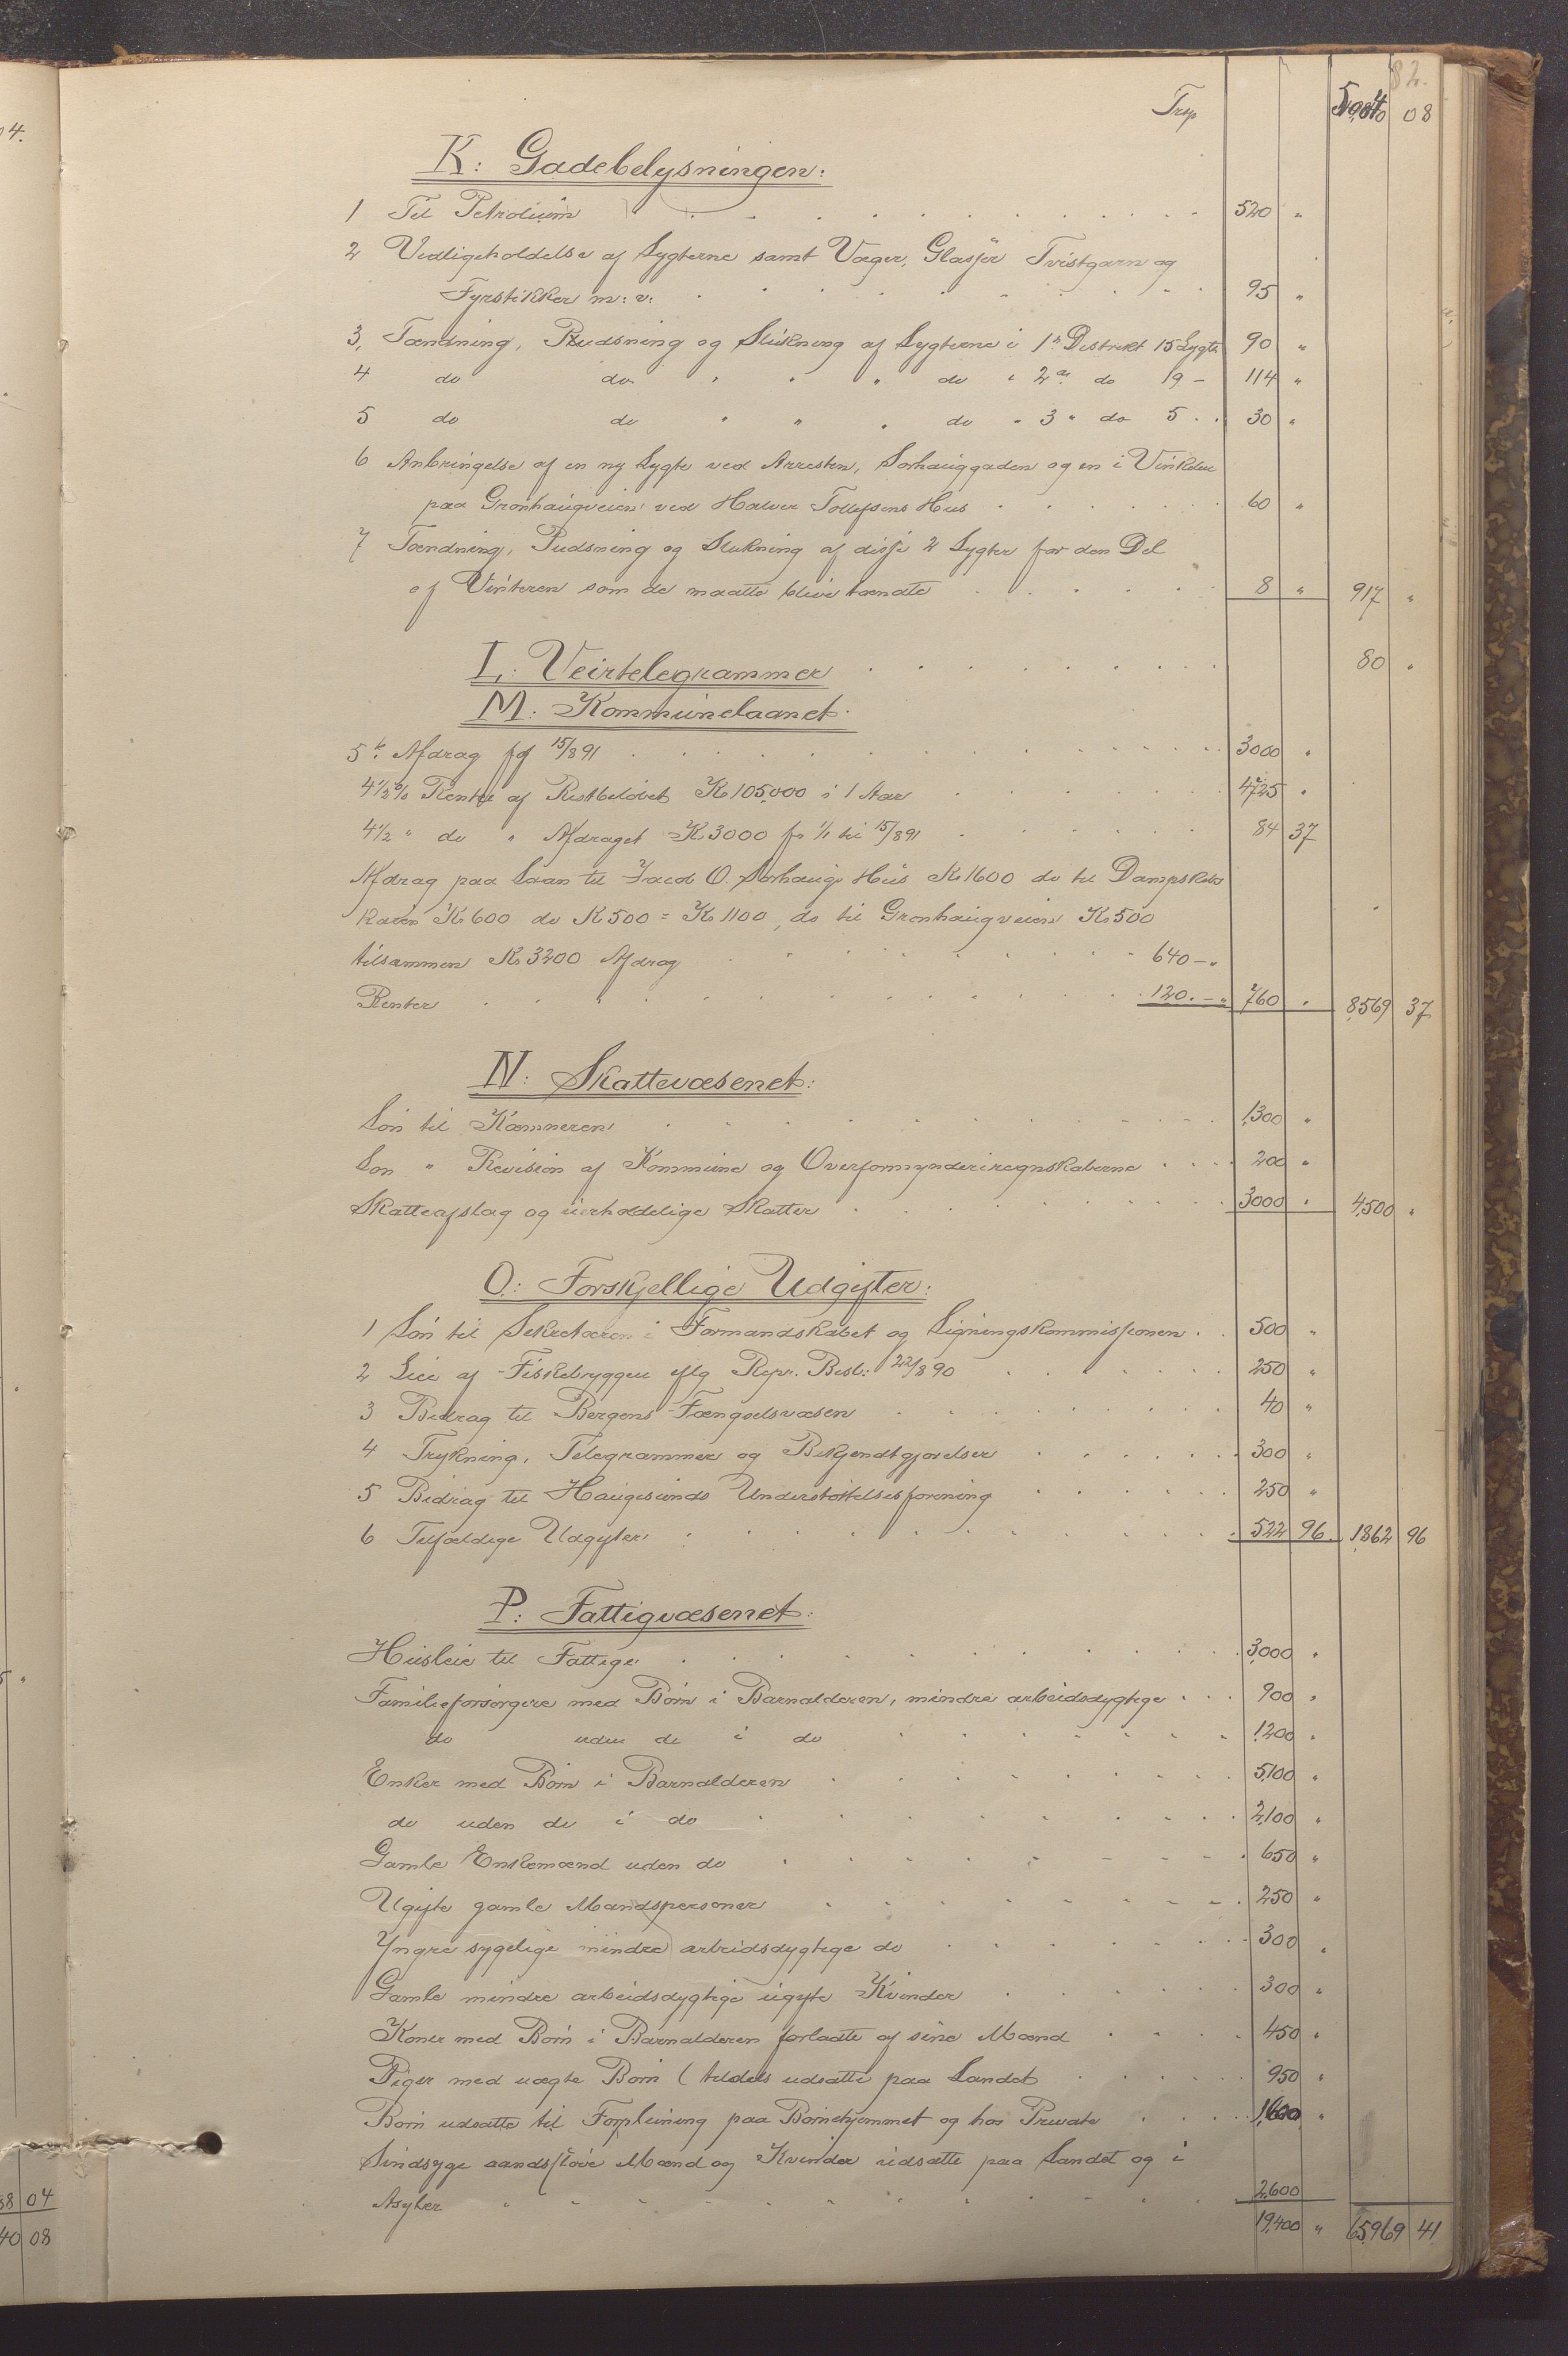 82.
Trsp 08
K: Gadebelysningen:
1 Til Petrolium 520 "
2 Vedligeholdelse af Lygterne samt Væger, Glasser Tvistgarn og
Fyrstikker m: v: 95 "
3, Tændning, Pudsning og Slukning af Lygterne i 1ste Distrikt 15 Lygter 90 "
4 do do " " " do i 2det do 19 - 114 "
5 do do " " " do " 3 " do 5 30 "
6 Anbringelse af en ny Lygte ved Arresten, Sørhauggaden og en i Vinkelen
paa Grønhaugveien ved Halvor Tollefsens Hus 60 "
7 Tændning, Pudsning og Slukning af disse 2 Lygter for den Del
af Vinteren som de maatte blive tændte 8 " 917 "
L: Veirtelegrammer 80 "
M: Kommunelaanet:
5te Afdrag pg 15/8 91 3000 "
4 1/2 % Rente af Restbeløbet Kr 105,000 i 1 Aar 4725 "
4 1/2 " do " Afdraget Kr 3000 fr 1/1 til 15/8 91 84 37
Afdrag paa Laan til Jacob O. Sørhaugs Hus Kr 1600 do til Dampskibs
kaien Kr 600 do Kr 500 = Kr 1100, do til Grønhaugveien Kr 500
tilsammen Kr 3200 Afdrag 640 - "
Renter 120. - " 760 " 8,569 37
N: Skattevæsenet:
Løn til Kæmneren 1,300 "
Løn " Revision af Kommune og Overformynderiregnskaberne 200 "
Skatteafslag og uerholdelige Skatter 3000 " 4,500 "
O: Forskjellige Udgifter:
1 Løn til Sekretæren i Formandskabet og Ligningskommissionen 500 "
2 Leie af Fiskebryggen iflg Repr. Besl: 22/8 90 250 "
3 Bidrag til Bergens Fængselsvæsen 40 "
4 Trykning, Telegrammer og Bekjendtgjørelser 300 "
5 Bidrag til Haugesunds Understøttelsesforening 250 "
6 Tilfældige Udgifter 522 96 1,862 96
P: Fattigvæsenet:
Husleie til Fattige 3,000 "
Familieforsørgere med Børn i Barnalderen, mindre arbeidsdygtige 900 "
do uden do i do 1,200 "
Enker med Børn i Barnalderen 5,100 "
do uden do i do 2,100 "
Gamle Enkemænd uden do 650 "
Ugifte gamle Mandspersoner 250 "
Yngre sygelige mindre arbeidsdygtige do 300 "
Gamle mindre arbeidsdygtige ugifte Kvinder 300 "
Koner med Børn i Barnalderen forladte af sine Mænd 450 "
Piger med uægte Børn (tildels udsatte paa Landet 950 "
Børn udsatte til Forpleining paa Børnehjemmet og hos Private 1,600 "
Sindsyge aandssløve Mænd og Kvinder udsatte paa Landet og i
Asyler 2,600
19,400 " 65,969 41
04.
5 "
88 04
40 08